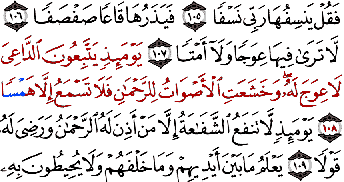 فَقُلْ يَنسِفُهَا رَبِّى نَسْفًا ١٠٥ فَيَذَرُهَا قَاعًا صَفْصَفًا ١٠٦
لَّا تَرَىٰ فِيهَا عِوَجًا وَلَآ أَمْتًا ١٠٧ يَوْمَئِذٍ يَتَّبِعُونَ ٱلدَّاعِىَ
لَا عِوَجَ لَهُۥ ۖ وَخَشَعَتِ ٱلْأَصْوَاتُ لِلرَّحْمَٰنِ فَلَا تَسْمَعُ إِلَّا هَمْسًا
١٠٨ يَوْمَئِذٍ لَّا تَنفَعُ ٱلشَّفَٰعَةُ إِلَّا مَنْ أَذِنَ لَهُ ٱلرَّحْمَٰنُ وَرَضِىَ لَهُۥ
قَوْلًا ١٠٩ يَعْلَمُ مَا بَيْنَ أَيْدِيهِمْ وَمَا خَلْفَهُمْ وَلَا يُحِيطُونَ بِهِۦ